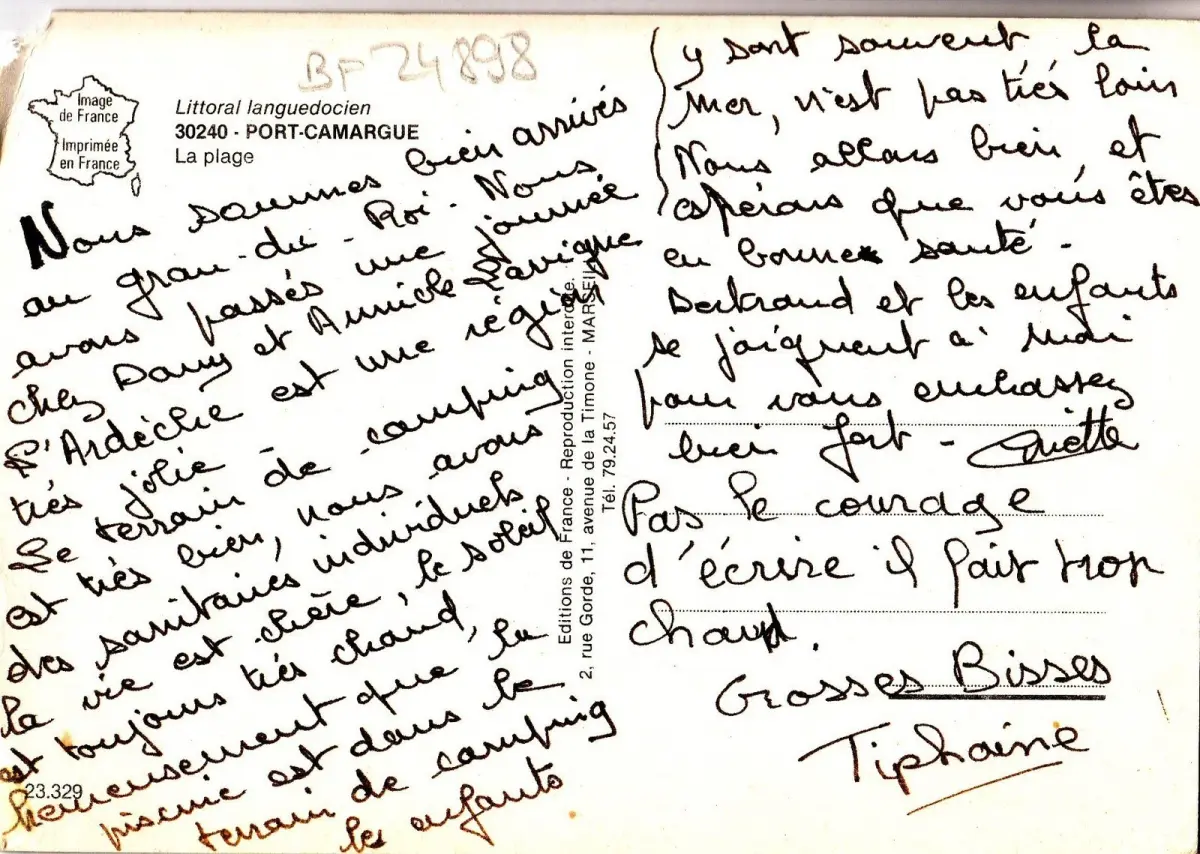 BF 24898
Image
de France
Imprimée
en France
Littoral languedocien
30240 - PORT-CAMARGUE
La plage
Nous sommes bien arrivés
au grau-du-Roi. Nous
avons passés une journée
chez Dany et Annick
L'Ardèche est une région
très jolie -
Le terrain de camping
est très bien, nous avons
des sanitaires individuels
la vie est chère, le soleil
est toujours très chaud,
heureusement que la
piscine est dans le
terrain de camping
les enfants
23.329
Editions de France - Reproduction interdite.
2, rue Gorde, 11, avenue de la Timone - MARSEILLE
Tél. 79.24.57
y sont souvent la
mer, n'est pas très loin
Nous allons bien, et
espérons que vous êtes
en bonne santé -
Bertrand et les enfants
se joignent à moi
pour vous embrassez
bien fort -
Pas le courage
d'écrire il fait trop
chaud.
Grosses Bisses
Tiphaine